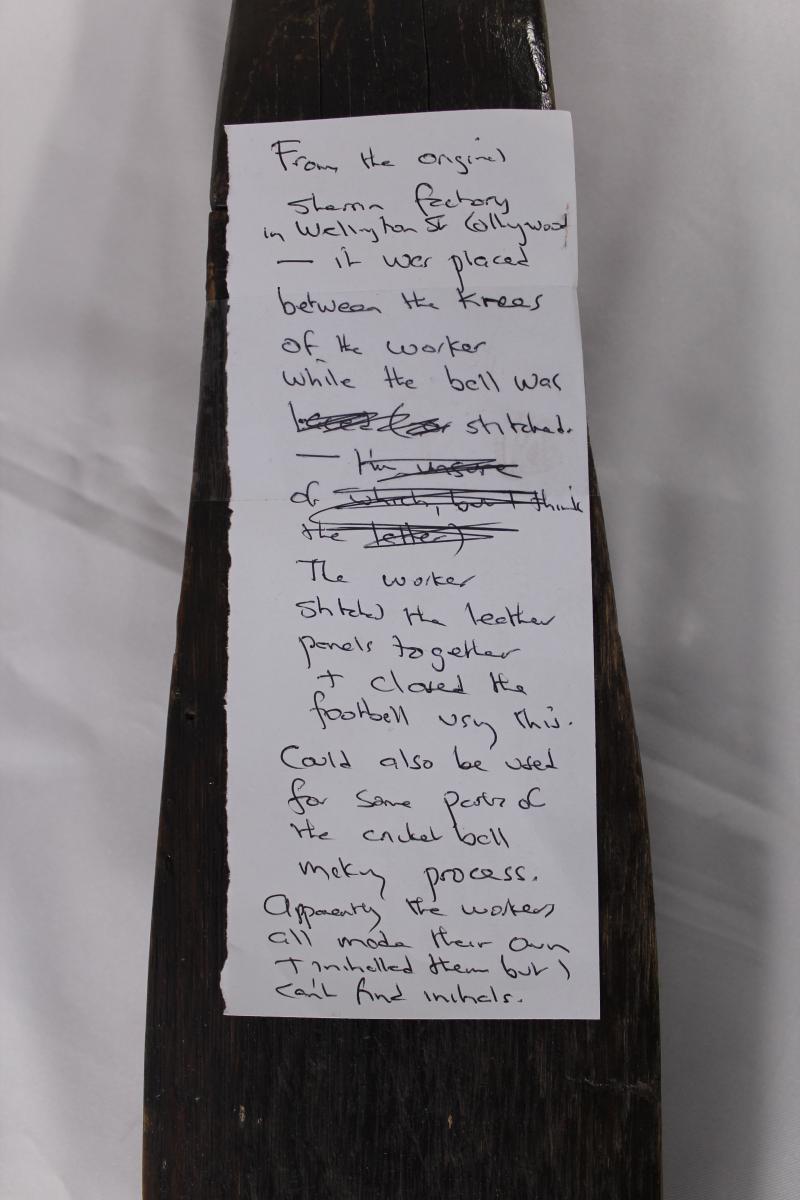 From the original
Sherrin factory
in Wellington St Collingwood
— it was placed
between the knees
of the worker
while the ball was
stitched.
— I'm unsure
of which, but I think
the latter)
The worker
stitched the leather
panels together
+ closed the
football using this.
Could also be used
for some parts of
the cricket ball
making process.
Apparently the workers
all made their own
+ initialled them but I
can't find initials.